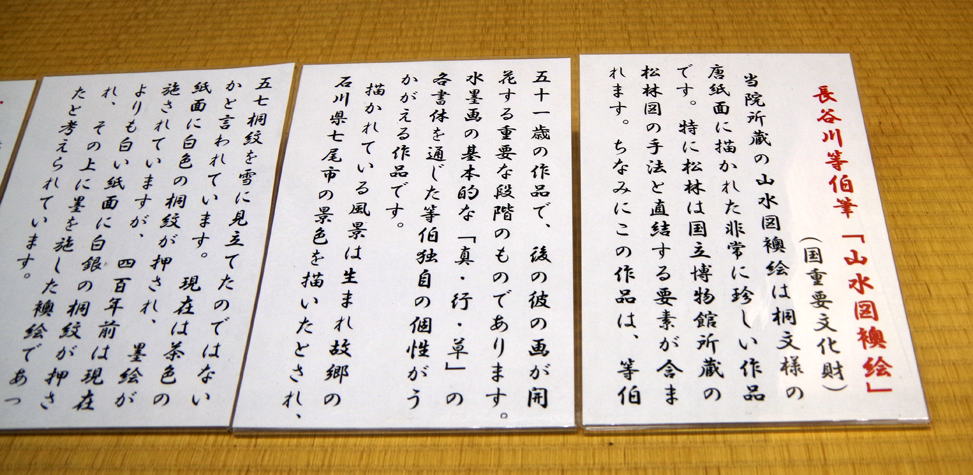 長谷川等伯筆「山水図襖絵」
（国重要文化財）
当院所蔵の山水図襖絵は桐文様の
唐紙面に描かれた非常に珍しい作品
です。特に松林は国立博物館所蔵の
松林図の手法と直結する要素が含ま
れます。ちなみにこの作品は、等伯
五十一歳の作品で、後の彼の画が開
花する重要な段階のものであります。
水墨画の基本的な「真・行・草」の
各書体を通じた等伯独自の個性がう
かがえる作品です。
描かれている風景は生まれ故郷の
石川県七尾市の景色を描いたとされ、
五七桐紋を雪に見立てたのではない
かと言われています。現在は茶色の
紙面に白色の桐紋が押され、墨絵が
施されていますが、四百年前は現在
よりも白い紙面に白銀の桐紋が押さ
れ、その上に墨を施した襖絵であっ
たと考えられています。